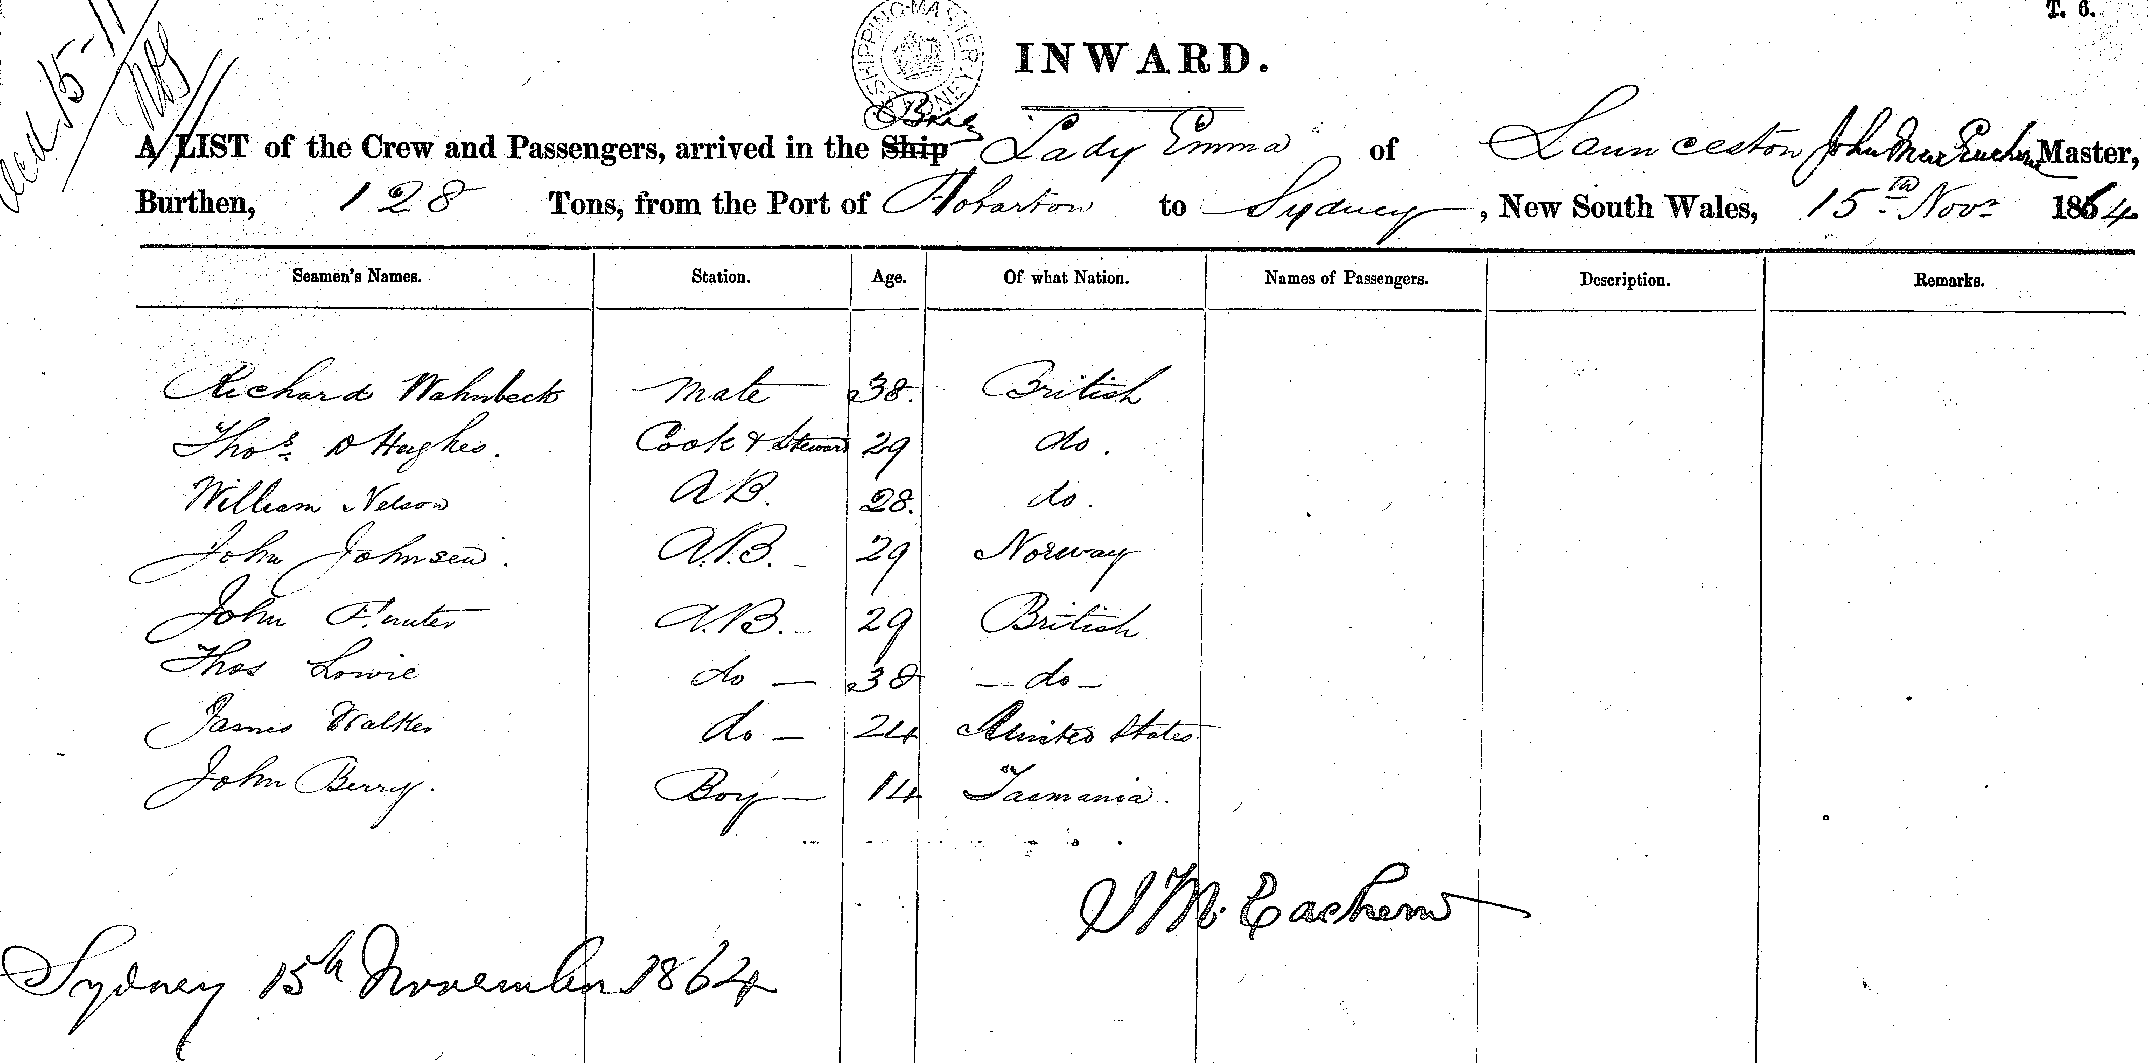 T. 6.
SHIPPING MASTER SYDNEY
INWARD.
Recd 15-11
Brig
A LIST of the Crew and Passengers, arrived in the Ship Lady Emma of Launceston John MacEachern Master,
Burthen, 128 Tons, from the Port of Hobarton to Sydney, New South Wales, 15th Novr 1864
Seamen's Names. Station. Age. Of what Nation. Names of Passengers. Description. Remarks.
Richard Wahnbeck Mate 38. British
Thos. D Hughes. Cook & Steward 29 do.
William Nelson A B. 28. do.
John Johnsen. A.B. 29 Norway
John A.B. 29 British
Thos Lowie do 38 do
James Walker do 24 United States
John Berry. Boy 14 Tasmania.
J Mc Eachern
Sydney 15th November 1864